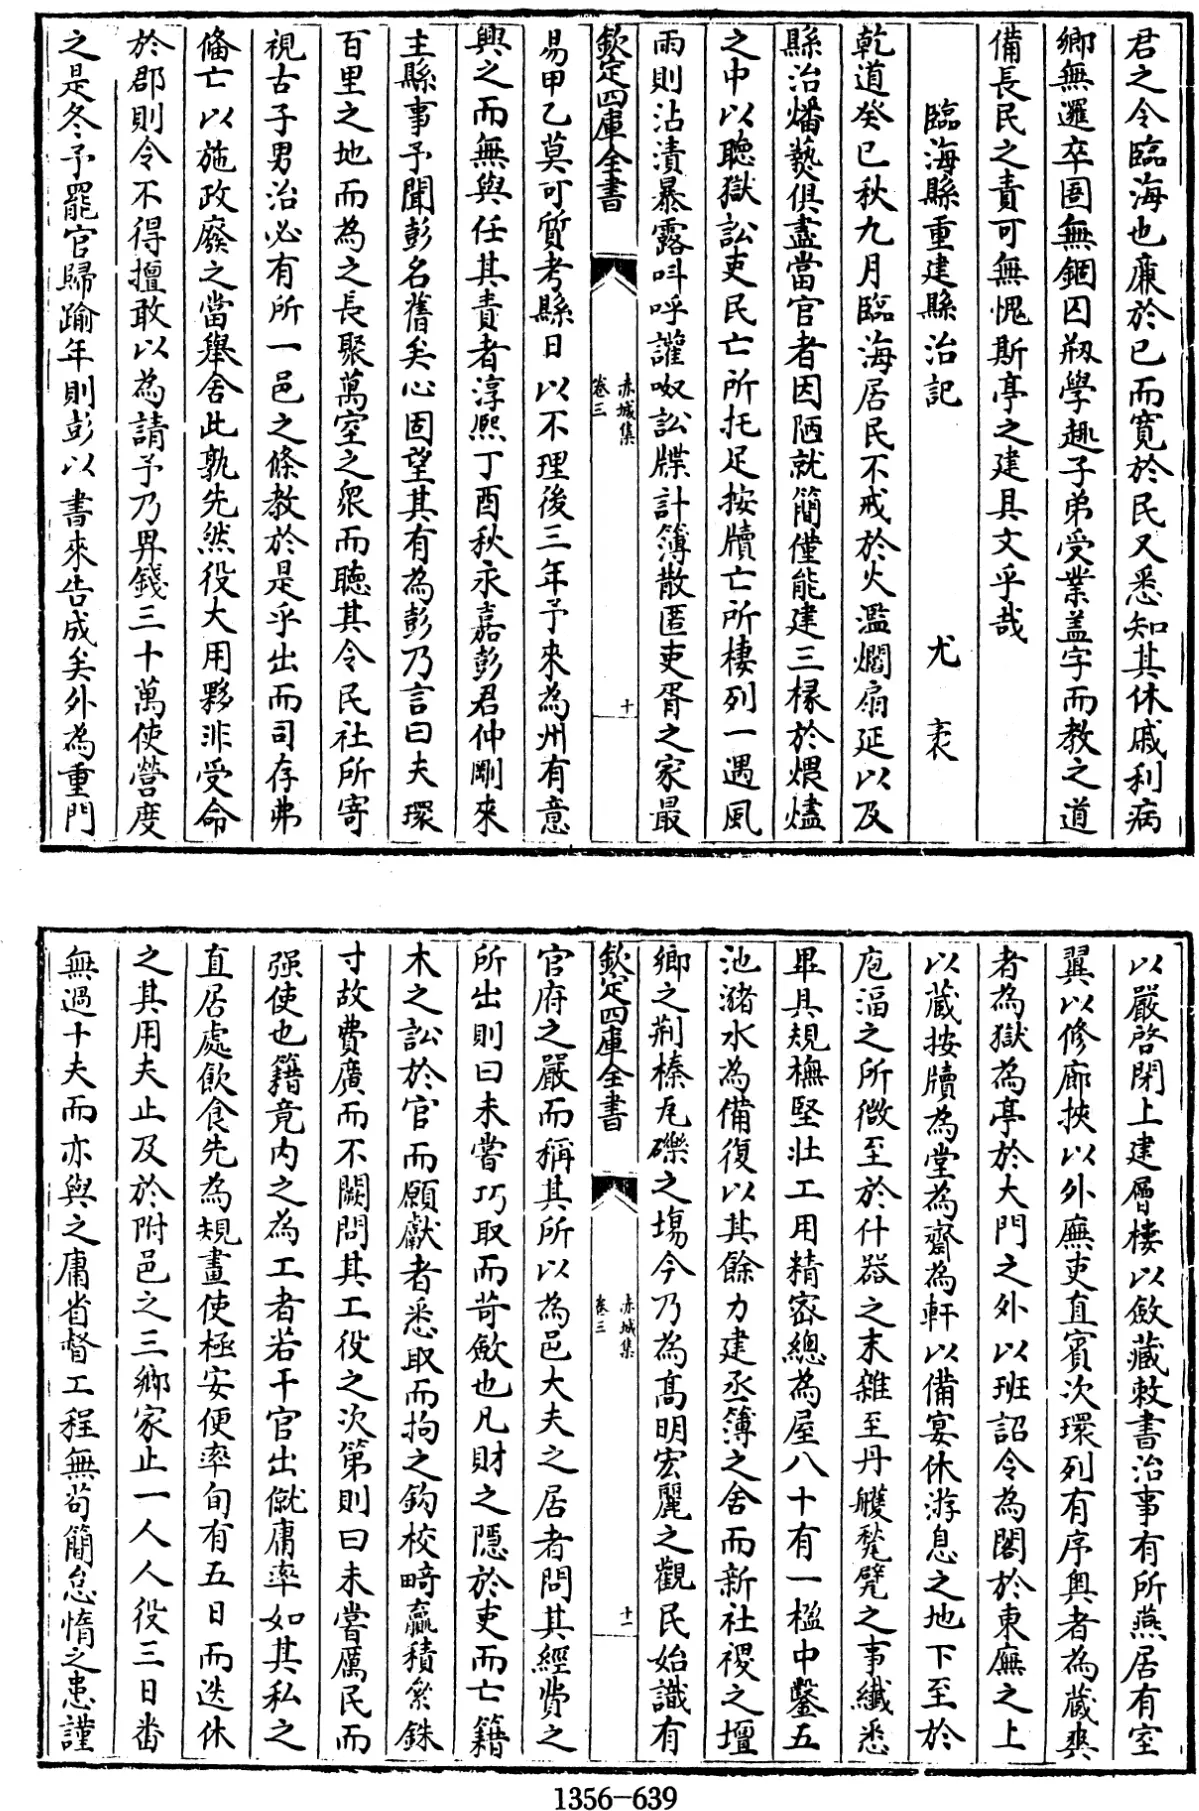 君之令臨海也廉於已而寛於民又悉知其休戚利病
鄉無邏卒圄無錮囚剏學趣子弟受業盖字而教之道
備長民之責可無愧斯亭之建具文乎哉
臨海縣重建縣治記 尤袤
乾道癸已秋九月臨海居民不戒於火濫爓扇延以及
縣治燔爇俱盡當官者因陋就簡僅能建三椽於煨燼
之中以聽獄訟吏民亡所托足按牘亡所棲列一遇風
雨則沾漬暴露呌呼讙呶訟牒計簿散匿吏胥之家最
欽定四庫全書 赤城集 卷三 十
易甲乙莫可質考縣日以不理後三年予來為州有意
興之而無與任其責者淳熈丁酉秋永嘉彭君仲剛來
主縣事予聞彭名舊矣心固望其有為彭乃言曰夫環
百里之地而為之長聚萬室之衆而聴其令民社所寄
視古子男治必有所一邑之條教於是乎出而司存弗
偹亡以施政廢之當舉舍此孰先然役大用夥非受命
於郡則令不得擅敢以為請予乃畀錢三十萬使營度
之是冬予罷官歸踰年則彭以書來告成矣外為重門
以嚴啓閉上建層樓以斂藏敕書治事有所燕居有室
翼以修廊挾以外廡吏直賓次環列有序奥者為蔵爽
者為獄為亭於大門之外以班詔令為閣於東廡之上
以蔵按牘為堂為齋為軒以備宴休游息之地下至於
庖湢之所微至於什器之末雜至丹雘甃甓之事纎悉
畢具規橅堅壯工用精宻總為屋八十有一楹中鑿五
池瀦水為備復以其餘力建丞簿之舍而新社稷之壇
鄉之荆榛瓦礫之塲今乃為髙明宏麗之觀民始識有
欽定四庫全書 赤城集 卷三 十一
官府之嚴而稱其所以為邑大夫之居者問其經費之
所出則曰未嘗巧取而苛斂也凡財之隱於吏而亡籍
木之訟於官而願獻者悉取而拘之鈎校畸贏積絫銖
寸故費廣而不闕問其工役之次第則曰未嘗厲民而
强使也籍竟内之為工者若干官出僦庸率如其私之
直居處飲食先為規畫使極安便率旬有五日而迭休
之其用夫止及於附邑之三鄉家止一人人役三日畨
無過十夫而亦與之庸省督工程無茍簡怠惰之患謹
1356-639